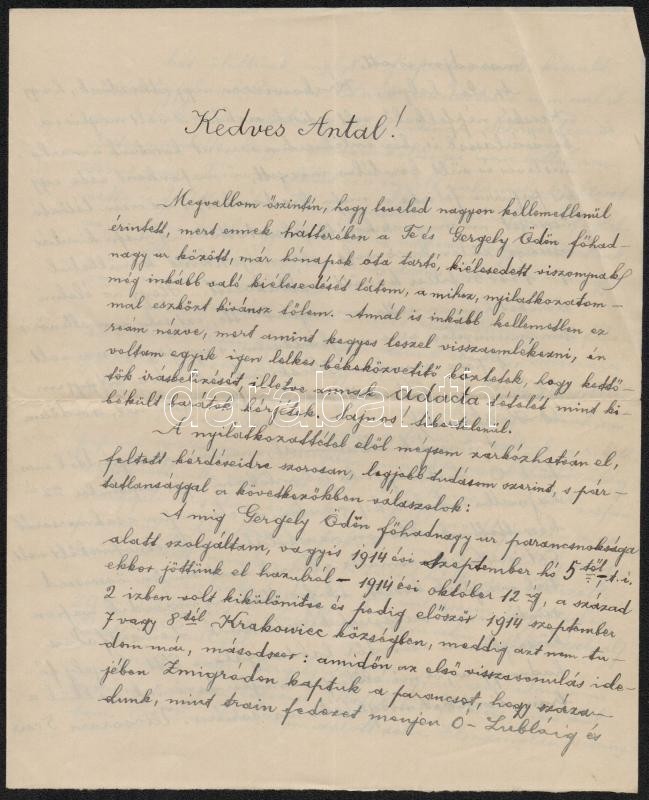 Kedves Antal!
Megvallom őszintén, hogy leveled nagyon kellemetlenül
érintett, mert ennek hátterében a Te és Gergely Ödön főhad-
nagy ur között, már hónapok óta tartó, kiélesedett viszonynak
még inkább való kiélesedését látom, a mihez, nyilatkozatom-
mal eszközt kivánsz tőlem. Annál is inkább kellemetlen ez
reám nézve, mert amint kegyes leszel visszaemlékezni, én
voltam egyik igen lelkes békeközvetitő köztetek, hogy kettő-
tök irásbelizését, illetve annak adacta tételét mint ki-
békült barátok kérjétek. Sajnos! Sikertelenül.
A nyilatkozattétel elöl mégsem zárkózhatván el,
feltett kérdéseidre szorosan, legjobb tudásom szerint, s pár-
tatlansággal a következőkben válaszolok:
A mig Gergely Ödön főhadnagy ur parancsnoksága
alatt szolgáltam, vagyis 1914 évi szeptember hó 5-től – t. i.
ekkor jöttünk el hazulról – 1914 évi október 12 ig, a század
2 izben volt kikülönitve és pedig először 1914 szeptember
7 vagy 8 tól Krakowiec községben, meddig azt nem tu-
dom már, másodszor: amidőn az első visszavonulás ide-
jében Zmigródon kaptuk a parancsot, hogy száza-
dunk, mint train fedezet menjen Ó-Lublóig és
darabanth